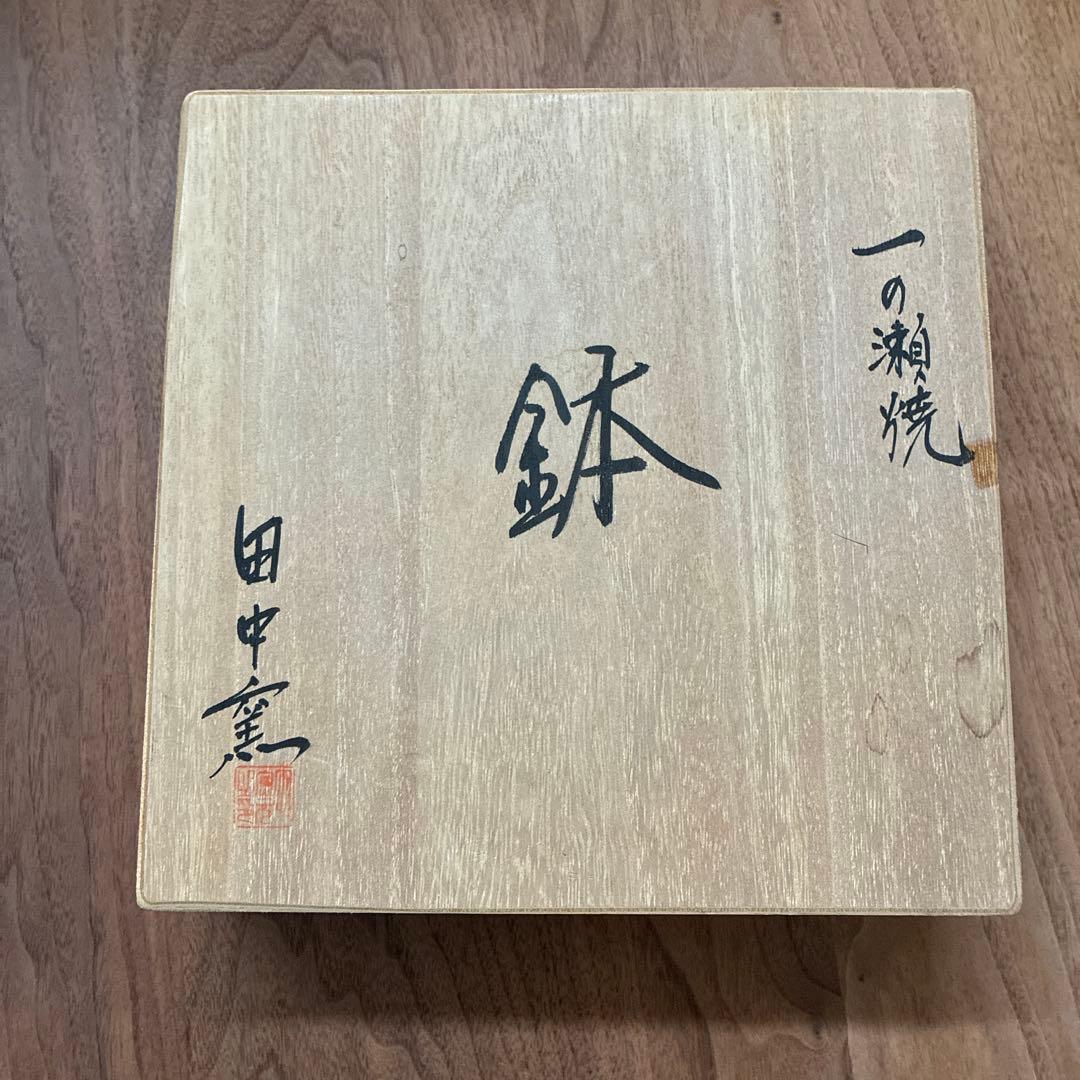 一の瀬焼
鉢
田中窯